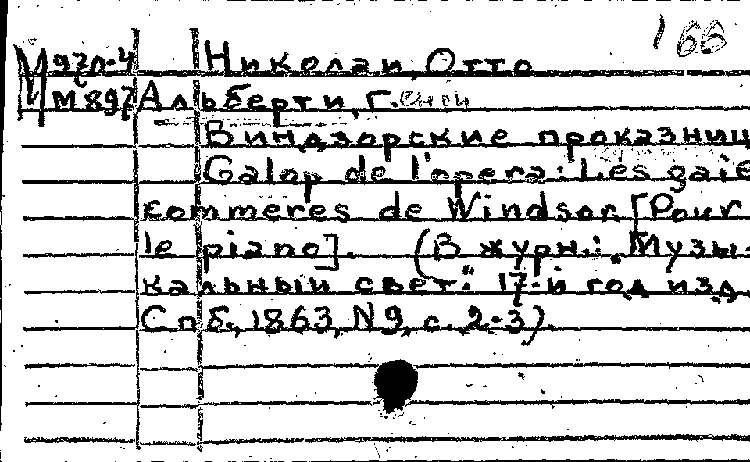 166
М 920-4 Николаи, Отто
М 897 Альберти, Г.
Виндзорские проказниц
Galop de l'opera: Les gaie
commeres de Windsor. [Pour
le piano]. (В журн.: „Музы-
кальный свет." 17-й год изд.
Спб., 1863, N9, с. 2-3).